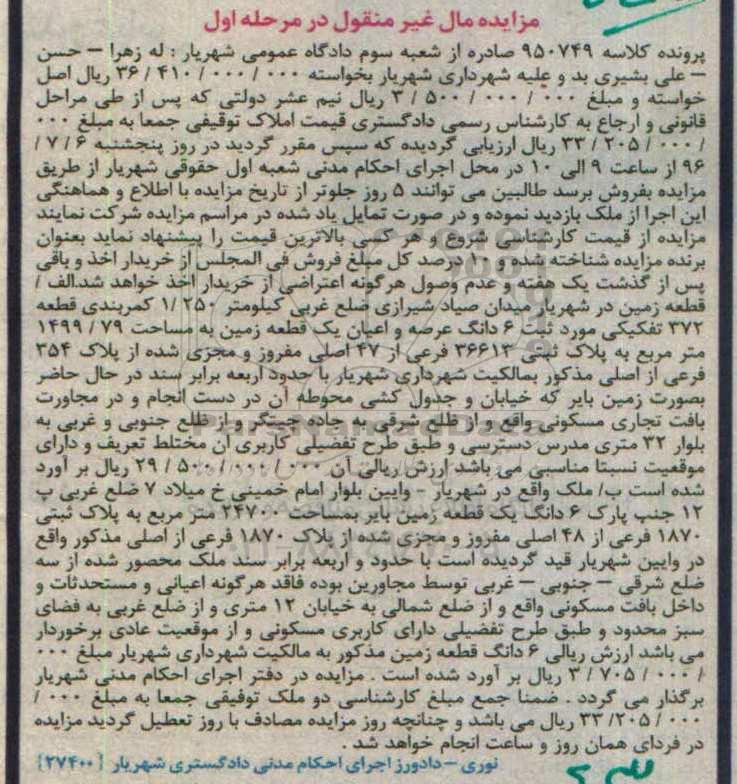 مزایده مال غیر منقول در مرحله اول
پرونده کلاسه ۹۵۰۷۴۹ صادره از شعبه سوم دادگاه عمومی شهریار : له زهرا – حسن
– علی بشیری بد و علیه شهرداری شهریار بخواسته ۰۰۰ / ۰۰۰ / ۴۱۰ / ۳۶ ریال اصل
خواسته و مبلغ ۰۰۰ / ۰۰۰ / ۵۰۰ / ۳ ریال نیم عشر دولتی که پس از طی مراحل
قانونی و ارجاع به کارشناس رسمی دادگستری قیمت املاک توقیفی جمعا به مبلغ ۰۰۰
/ ۰۰۰ / ۲۰۵ / ۳۳ ریال ارزیابی گردیده که سپس مقرر گردید در روز پنجشنبه ۶ / ۷ /
۹۶ از ساعت ۹ الی ۱۰ در محل اجرای احکام مدنی شعبه اول حقوقی شهریار از طریق
مزایده بفروش برسد طالبین می توانند ۵ روز جلوتر از تاریخ مزایده با اطلاع و هماهنگی
این اجرا از ملک بازدید نموده و در صورت تمایل یاد شده در مراسم مزایده شرکت نمایند
مزایده از قیمت کارشناسی شروع و هر کسی بالاترین قیمت را پیشنهاد نماید بعنوان
برنده مزایده شناخته شده و ۱۰ درصد کل مبلغ فروش فی المجلس از خریدار اخذ و باقی
پس از گذشت یک هفته و عدم وصول هرگونه اعتراضی از خریدار اخذ خواهد شد.الف /
قطعه زمین در شهریار میدان صیاد شیرازی ضلع غربی کیلومتر ۲۵۰ /۱ کمربندی قطعه
۳۷۲ تفکیکی مورد ثبت ۶ دانگ عرصه و اعیان یک قطعه زمین به مساحت ۷۹ / ۱۴۹۹
متر مربع به پلاک ثبتی ۳۶۶۱۳ فرعی از ۴۷ اصلی مفروز و مجزی شده از پلاک ۳۵۴
فرعی از اصلی مذکور بمالکیت شهرداری شهریار با حدود اربعه برابر سند در حال حاضر
بصورت زمین بایر که خیابان و جدول کشی محوطه آن در دست انجام و در مجاورت
بافت تجاری مسکونی واقع و از ظلع شرقی به جاده چیتگر و از ظلع جنوبی و غربی به
بلوار ۳۲ متری مدرس دسترسی و طبق طرح تفضیلی کاربری آن مختلط تعریف و دارای
موقعیت نسبتا مناسبی می باشد ارزش ریالی آن ۰۰۰ / ۰۰۰ / ۵۰۰ / ۲۹ ریال بر آورد
شده است ب/ ملک واقع در شهریار - وایین بلوار امام خمینی خ میلاد ۷ ضلع غربی پ
۱۲ جنب پارک ۶ دانگ یک قطعه زمین بایر بمساحت ۲۴۷۰۰ متر مربع به پلاک ثبتی
۱۸۷۰ فرعی از ۴۸ اصلی مفروز و مجزی شده از پلاک ۱۸۷۰ فرعی از اصلی مذکور واقع
در وایین شهریار قید گردیده است با حدود و اربعه برابر سند ملک محصور شده از سه
ضلع شرقی – جنوبی – غربی توسط مجاورین بوده فاقد هرگونه اعیانی و مستحدثات و
داخل بافت مسکونی واقع و از ضلع شمالی به خیابان ۱۲ متری و از ضلع غربی به فضای
سبز محدود و طبق طرح تفضیلی دارای کاربری مسکونی و از موقعیت عادی برخوردار
می باشد ارزش ریالی ۶ دانگ قطعه زمین مذکور به مالکیت شهرداری شهریار مبلغ ۰۰۰
/ ۰۰۰ / ۷۰۵ / ۳ ریال بر آورد شده است . مزایده در دفتر اجرای احکام مدنی شهریار
برگذار می گردد . ضمنا جمع مبلغ کارشناسی دو ملک توقیفی جمعا به مبلغ ۰۰۰ /
۰۰۰ /۲۰۵/ ۳۳ ریال می باشد و چنانچه روز مزایده مصادف با روز تعطیل گردید مزایده
در فردای همان روز و ساعت انجام خواهد شد .
نوری – دادورز اجرای احکام مدنی دادگستری شهریار (۲۷۴۰۰)